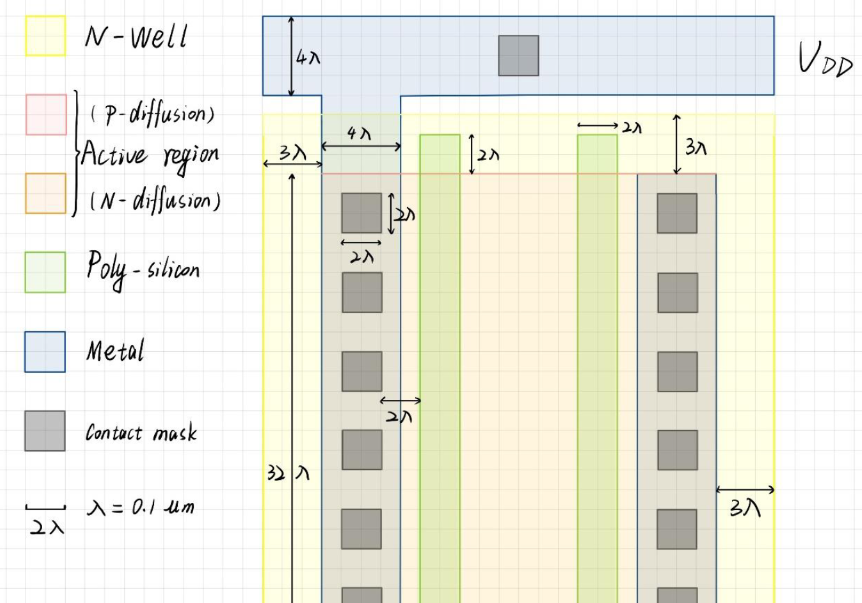 N-well
(P-diffusion)
Active region
(N-diffusion)
Poly-silicon
Metal
Contact mask
2λ
λ = 0.1 um
4λ
VDD
4λ
3λ
2λ
2λ
3λ
2λ
2λ
2λ
32λ
3λ